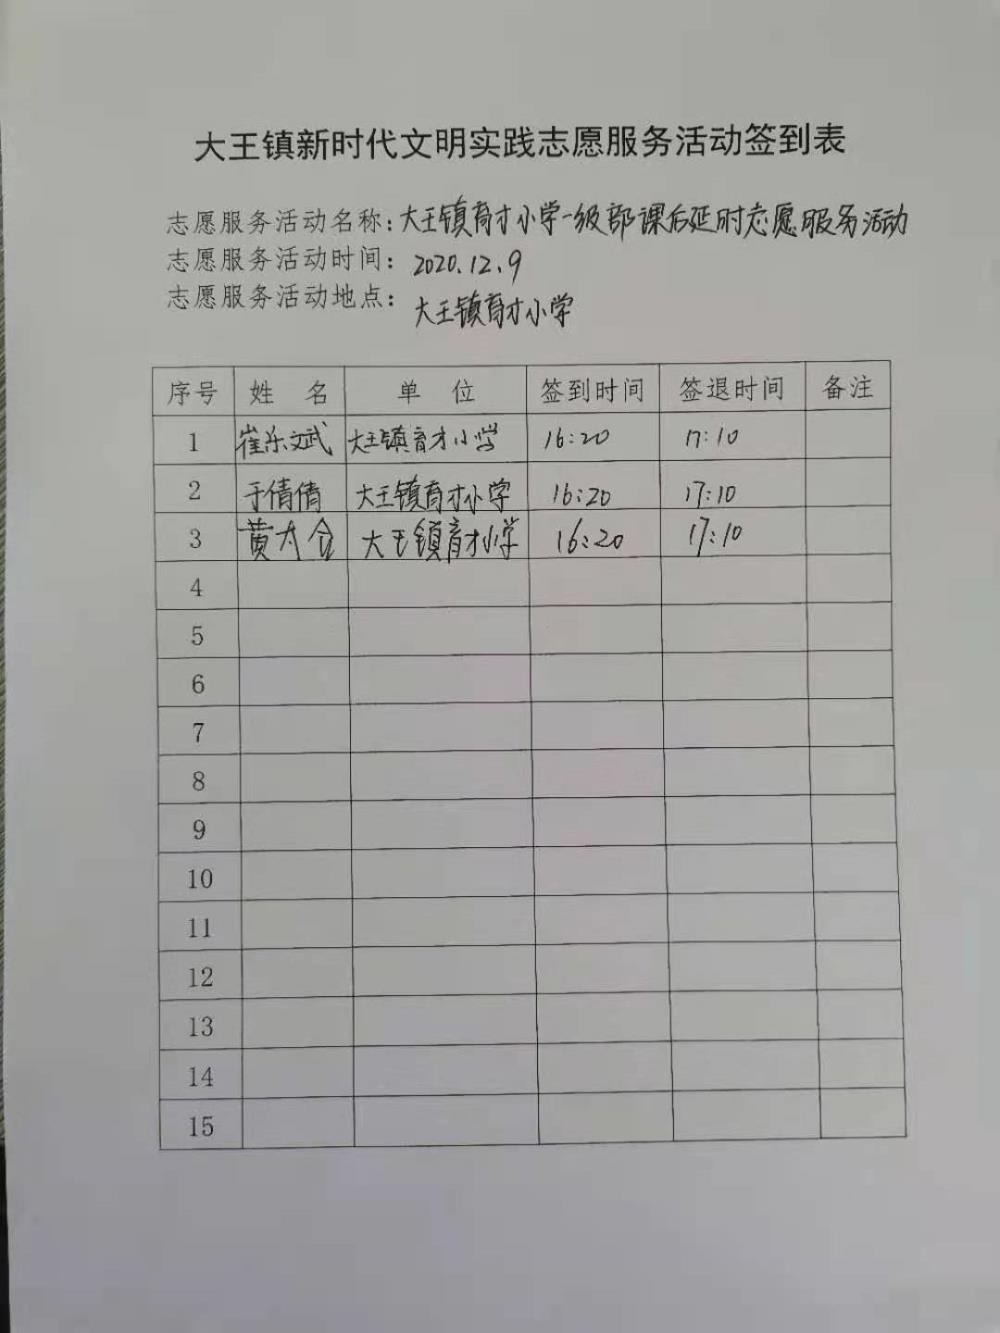 大王镇新时代文明实践志愿服务活动签到表
志愿服务活动名称：大王镇育才小学一级部课后延时志愿服务活动
志愿服务活动时间：2020.12.9
志愿服务活动地点：大王镇育才小学
序号 姓 名 单 位 签到时间 签退时间 备注
1 崔乐斌 大王镇育才小学 16:20 17:10
2 于倩倩 大王镇育才小学 16:20 17:10
3 黄 大王镇育才小学 16:20 17:10
4
5
6
7
8
9
10
11
12
13
14
15